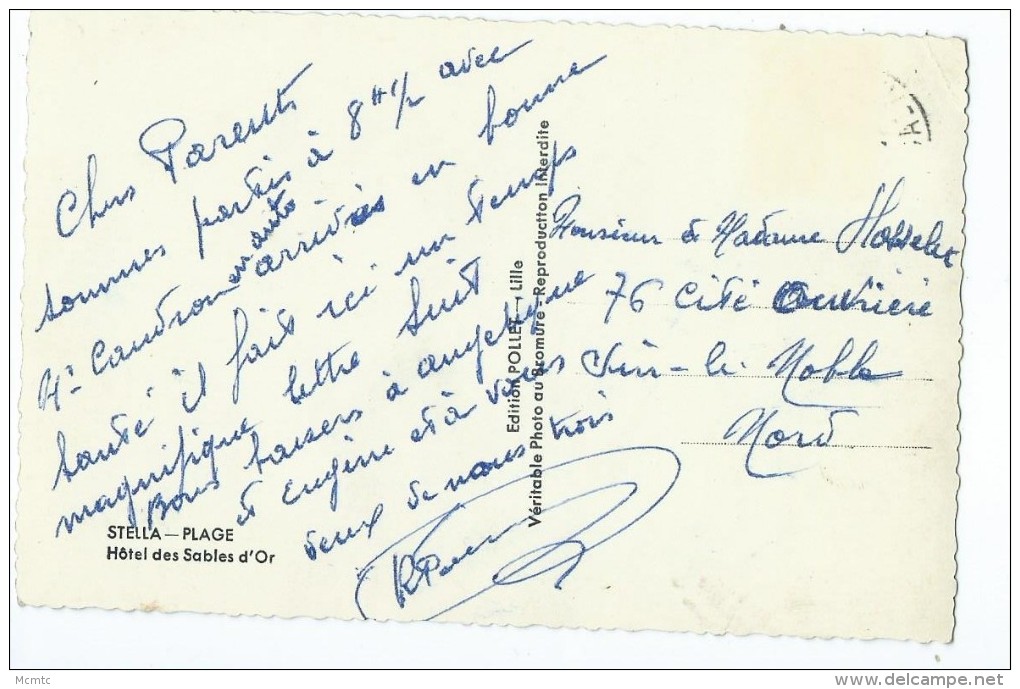 Chers Parents
sommes partis à 8 H 1/2 avec
Mr Caudron en auto - arrivés en bonne
santé il fait ici un temps
magnifique lettre suit
Bons baisers à angelique
et eugéne et à vous
deux de nous trois
STELLA — PLAGE
Hôtel des Sables d'Or
Edition POLLET — Lille
Véritable Photo au Bromure - Reproduction Interdite
Monsieur & Madame
76 Cité Ouvriére
Sin - le - Noble
Nord
Mcmtc
delcampe.net